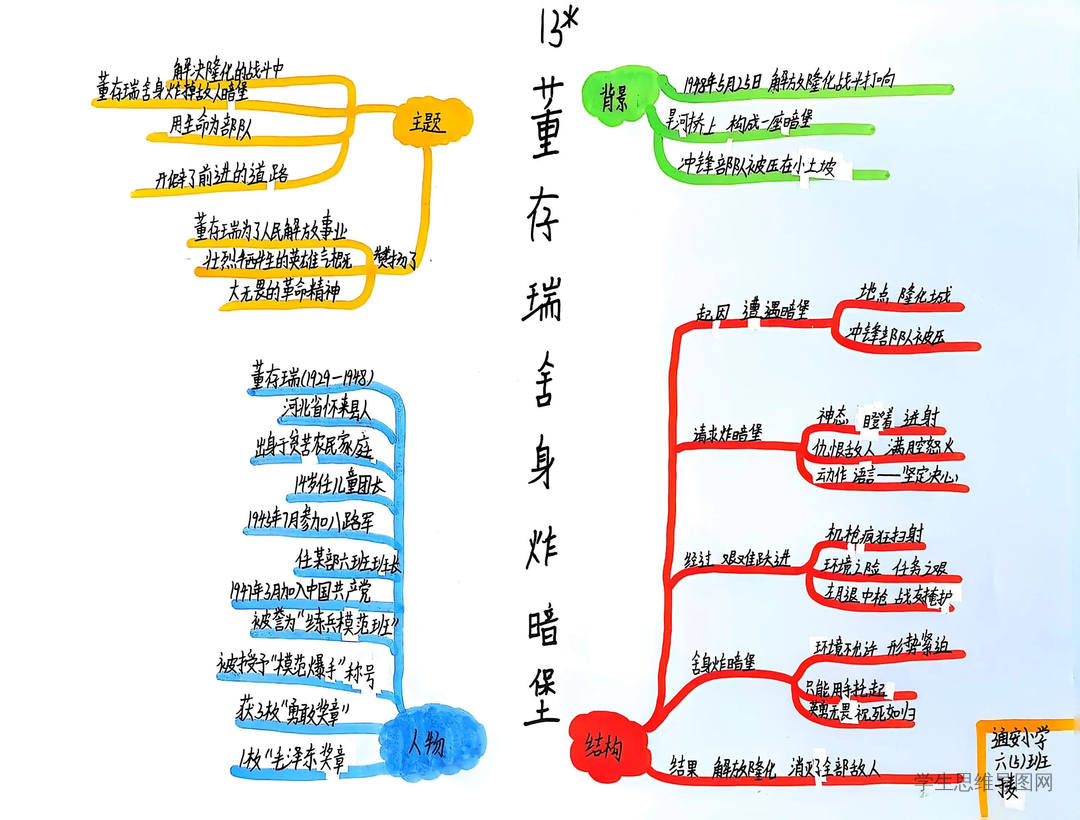 13*
董存瑞舍身炸暗堡
主题
解决隆化的战斗中
董存瑞舍身炸掉敌人暗堡
用生命为部队
开辟了前进的道路
赞扬了
董存瑞为了人民解放事业
壮烈牺牲的英雄气概
大无畏的革命精神
背景
1948年5月25日 解放隆化战斗打响
旱河桥上 构成一座暗堡
冲锋部队被压在小土坡
人物
董存瑞(1929-1948)
河北省怀来县人
出身于贫苦农民家庭
14岁任儿童团长
1945年7月参加八路军
任某部六班班长
1947年3月加入中国共产党
被誉为"练兵模范班"
被授予"模范爆手"称号
获3枚"勇敢奖章"
1枚"毛泽东奖章
结构
起因 遭遇暗堡
地点 隆化城
冲锋部队被压
请求炸暗堡
神态 瞪着 迸射
仇恨敌人 满腔怒火
动作 语言——坚定决心
经过 艰难跃进
机枪疯狂扫射
环境之险 任务之艰
左腿中枪 战友掩护
舍身炸暗堡
环境不允许 形势紧迫
只能用手托起
英勇无畏 视死如归
结果 解放隆化 消灭全部敌人
通安小学
六(5)班
学生思维导图网